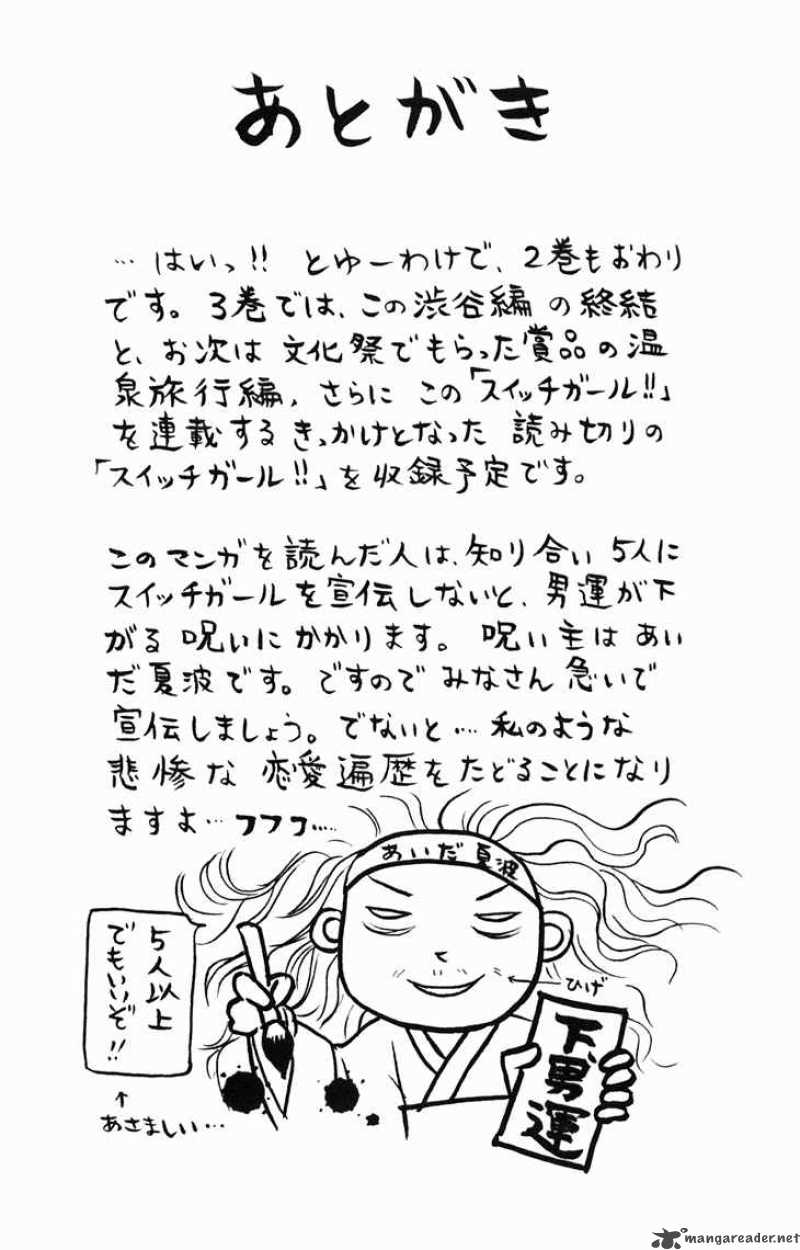 あとがき
…はいっ!! とゆーわけで、2巻もおわり
です。3巻では、この渋谷編の終結
と、お次は文化祭でもらった賞品の温
泉旅行編、さらにこの「スイッチガール!!」
を連載するきっかけとなった読み切りの
「スイッチガール!!」を収録予定です。
このマンガを読んだ人は、知り合い5人に
スイッチガールを宣伝しないと、男運が下
がる呪いにかかります。呪い主はあい
だ夏波です。ですのでみなさん急いで
宣伝しましょう。でないと…私のような
悲惨な恋愛遍歴をたどることになり
ますよ…フフフ……
あいだ夏波
5人以上
でもいいぞ!!
↑
あさましい…
←ひげ
下男運
mangareader.net